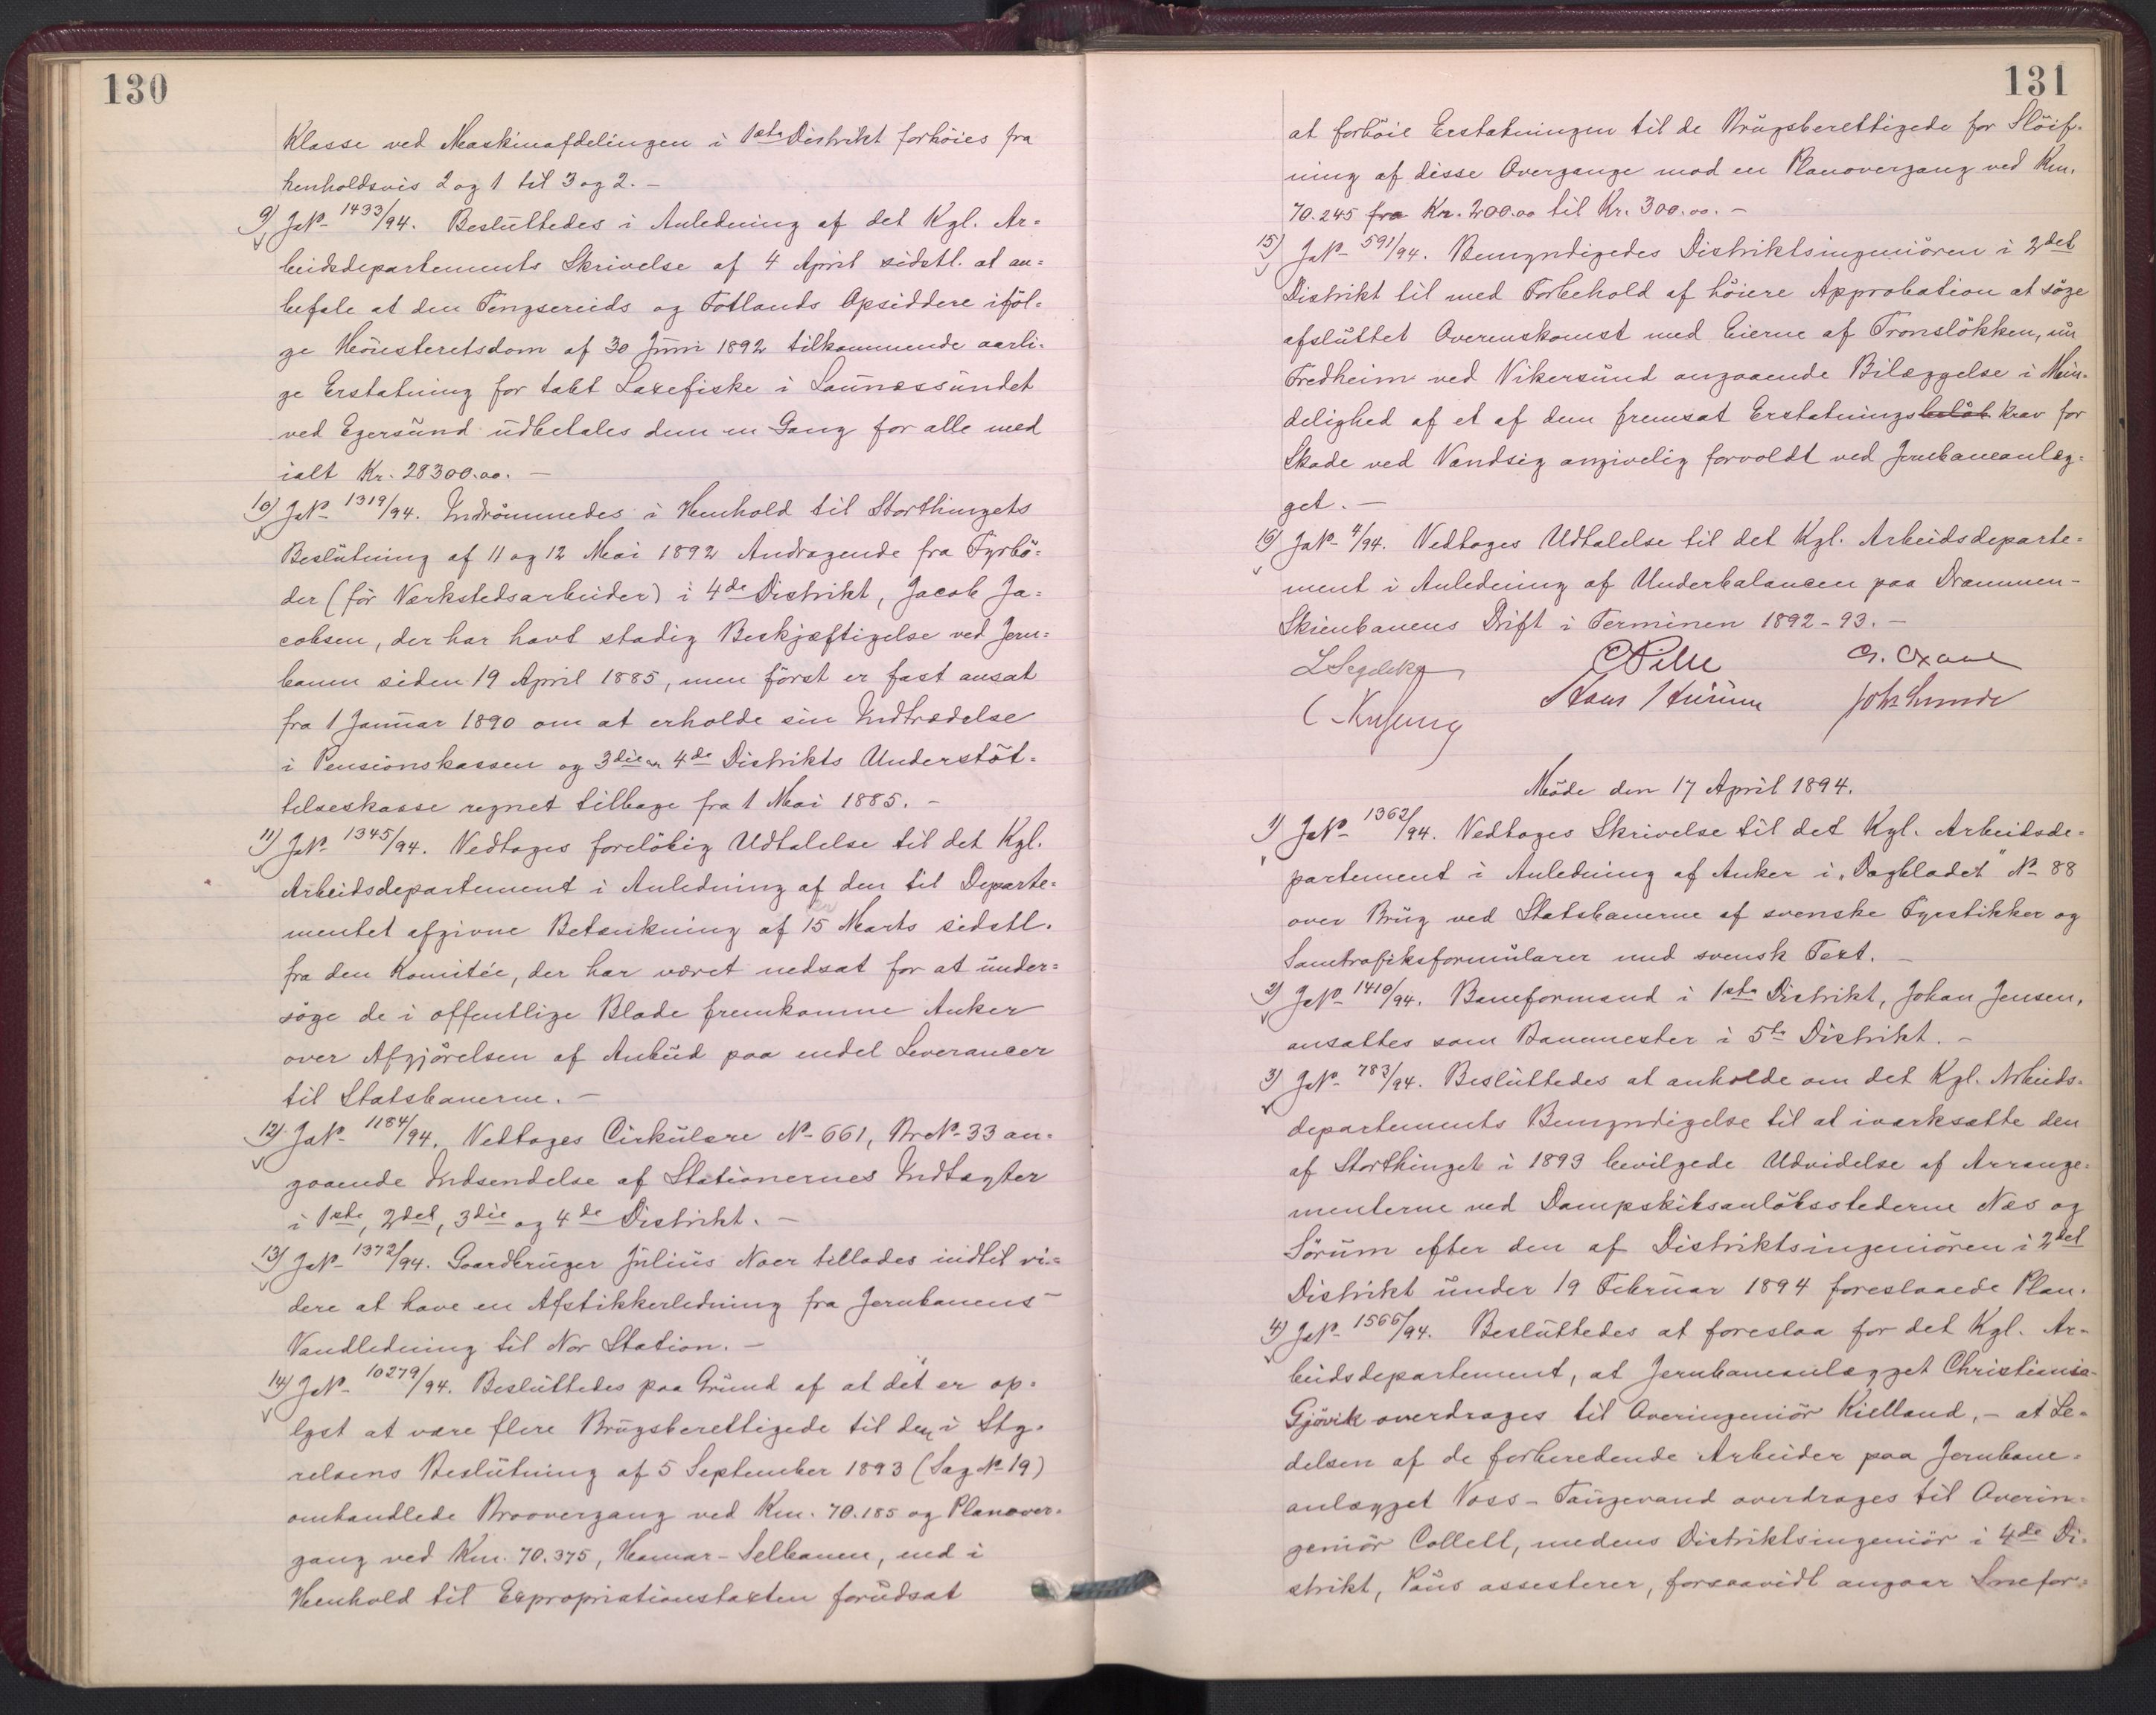 130
Klasse ved Maskinafdelingen i 1ste Distrikt forhöies fra
henholdsvis 2 og 1 til 3 og 2. –
9) JNo 1433/94. Besluttedes i Anledning af det Kgl. Ar=
beidsdepartements Skrivelse af 4 April sidstl. at an=
befale at den Tengsereids og Fotlands Opsiddere iföl=
ge Höiesteretsdom af 30 Juni 1892 tilkommende aarli=
ge Erstatning for tabt Laxefiske i Launæssundet
ved Egersund udbetales dem en Gang for alle med
ialt Kr. 28300.00. –
10) JNo 1319/94. Indrömmedes i Henhold til Storthingets
Beslutning af 11 og 12 Mai 1892 Andragende fra Fyrbö=
der (för Værkstedsarbeider) i 4de Distrikt, Jacob Ja=
cobsen, der har havt stadig Beskjæftigelse ved Jern=
banen siden 19 April 1885, men först er fast ansat
fra 1 Januar 1890 om at erholde sin Indtrædelse
i Pensionskassen og 3die og 4de Distrikts Understöt=
telseskasse regnet tilbage fra 1 Mai 1885. –
11) JNo 1345/94. Vedtoges forelöbig Udtalelse til det Kgl.
Arbeidsdepartement i Anledning af den til Departe=
mentet afgivne Betænkning af 15 Marts sidstl.
fra den Komitée, der har været nedsat for at under=
söge de i offentlige Blade fremkomne Anker
over Afgjörelsen af Anbud paa endel Leverancer
til Statsbanerne. –
12) JNo 1184/94. Vedtoges Cirkulære No 661, Br No 33 an=
gaaende Indsendelse af Stationernes Indtægter
i 1ste, 2det, 3die og 4de Distrikt. –
13) JNo 1372/94. Gaardbruger Julius Noer tillodes indtil vi=
dere at have en Afstikkerledning fra Jernbanens
Vandledning til Nor Station. –
14) JNo 10279/94. Besluttedes paa Grund af at det er op=
lyst at være flere Brugsberettigede til den i Sty=
relsens Beslutning af 5 September 1893 (Sag No 19)
omhandlede Broovergang ved Km. 70.185 og Planover=
gang ved Km. 70.375, Hamar-Selbanen, end i
Henhold til Expropriationstaxten forudsat
131
at forhöie Erstatningen til de Brugsberettigede for Slöif=
ning af disse Overgange mod en Planovergang ved Km.
70.245 fra Kr. 200.00 til Kr. 300.00. –
15) JNo 591/94. Bemyndigedes Distriktsingeniören i 2det
Distrikt til med Forbehold af höiere Approbation at söge
afsluttet Overenskomst med Eierne af Tronslökken, nu
Fredheim ved Vikersund angaaende Bilæggelse i Min=
delighed af et af dem fremsat Erstatningsbelöb krav for
Skade ved Vandsig angivelig forvoldt ved Jernbaneanlæg=
get. –
16) JNo 4/94. Vedtoges Udtalelse til det Kgl. Arbeidsdeparte=
ment i Anledning af Underbalancen paa Drammen-
Skienbanens Drift i Terminen 1892-93. –
C Pihl
Joh. Lunde
Möde den 17 April 1894.
1) JNo 1362/94. Vedtoges Skrivelse til det Kgl. Arbeidsde=
partement i Anledning af Anker i „Dagbladet" No 88
over Brug ved Statsbanerne af svenske Fyrstikker og
Samtrafiksformularer med svensk Text. –
2) JNo 1410/94. Baneformand i 1ste Distrikt, Johan Jensen,
ansattes som Banemester i 5te Distrikt. –
3) JNo 783/94. Besluttedes at anholde om det Kgl. Arbeids=
departements Bemyndigelse til at iværksætte den
af Storthinget i 1893 bevilgede Udvidelse af Arrange=
menterne ved Dampskibsanlöbsstederne Næs og
Sörum efter den af Distriktsingeniören i 2det
Distrikt under 19 Februar 1894 foreslaaede Plan.
4) JNo 1566/94. Besluttedes at foreslaa for det Kgl. Ar=
beidsdepartement, at Jernbaneanlægget Christiania-
Gjövik overdrages til Overingeniör Kielland, – at Le=
delsen af de forberedende Arbeider paa Jernbane=
anlægget Voss-Taugevand overdrages til Overin=
geniör Collett, medens Distriktsingeniör i 4de Di=
strikt, Paus assesterer, forsaavidt angaar Snefor=